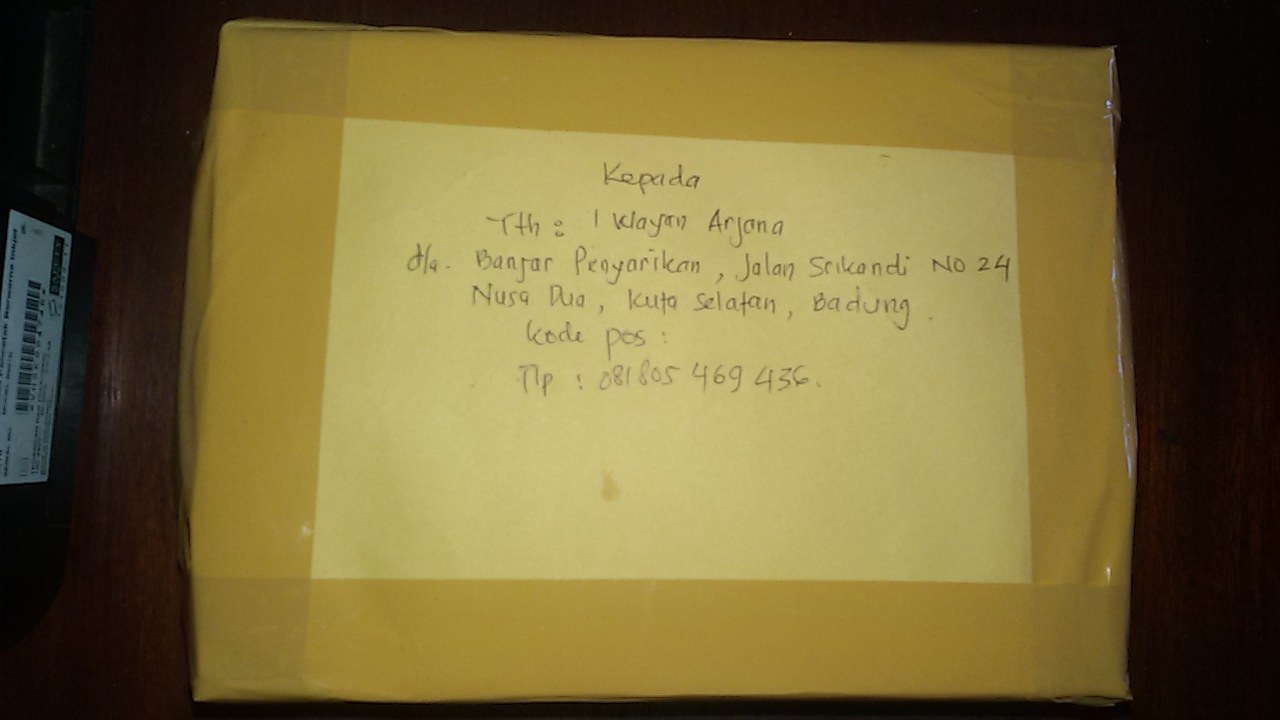 Kepada
Yth : I Wayan Arjana
d/a. Banjar Penyarikan, Jalan Srikandi No 24
Nusa Dua, Kuta Selatan, Badung.
Kode pos :
Tlp : 081805 469 436.